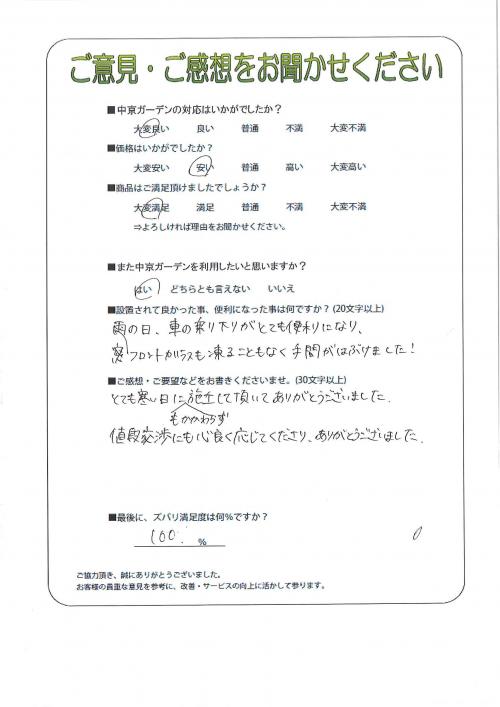 ご意見・ご感想をお聞かせください
■中京ガーデンの対応はいかがでしたか？
大変良い 良い 普通 不満 大変不満
■価格はいかがでしたか？
大変安い 安い 普通 高い 大変高い
■商品はご満足頂けましたでしょうか？
大変満足 満足 普通 不満 大変不満
⇒よろしければ理由をお聞かせください。
■また中京ガーデンを利用したいと思いますか？
はい どちらとも言えない いいえ
■設置されて良かった事、便利になった事は何ですか？(20文字以上)
雨の日、車の乗り下りがとても便利になり、
窓フロントガラスも凍ることもなく手間がはぶけました！
■ご感想・ご要望などをお書きくださいませ。(30文字以上)
とても寒い日に施工して頂いてありがとうございました。
もかかわらず
値段交渉にも心良く応じてくださり、ありがとうございました。
■最後に、ズバリ満足度は何%ですか？
100. %
ご協力頂き、誠にありがとうございました。
お客様の貴重な意見を参考に、改善・サービスの向上に活かして参ります。